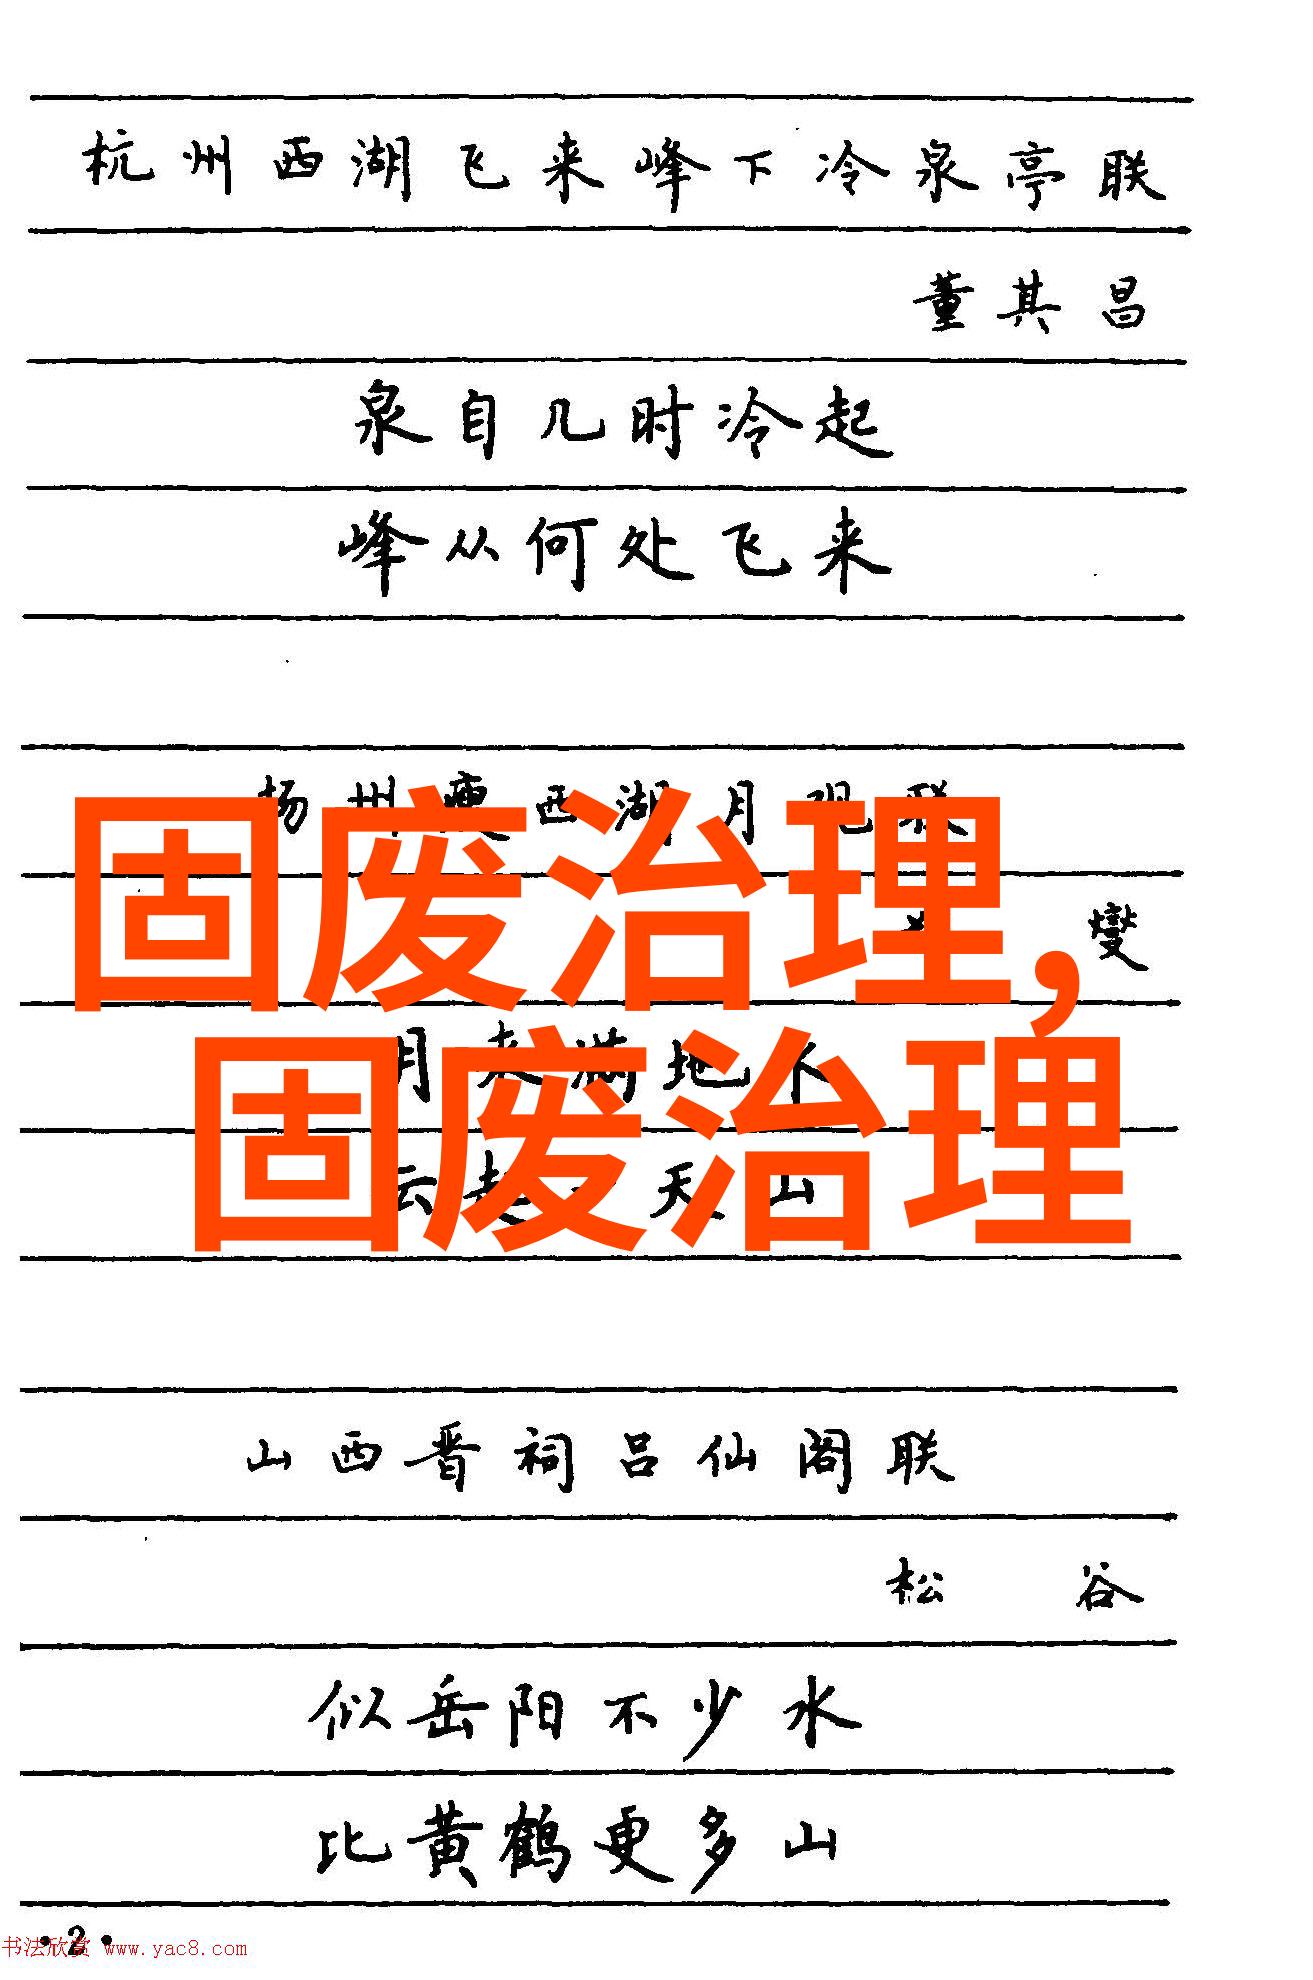 杭州西湖飞来峰下冷泉亭联
董其昌
泉自几时冷起
峰从何处飞来
扬州瘦西湖月观联
燮
固废治理,
月来满地
固废治理
云起 天山
山西晋祠吕仙阁联
松谷
似岳阳不少水
比黄鹤更多山
·2·
书法欣赏 www.yac8.com